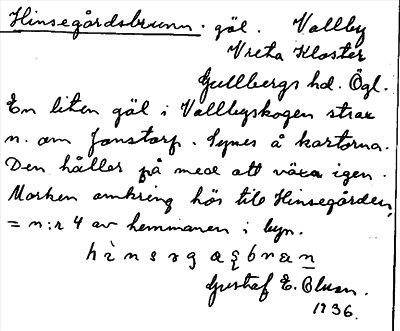 Hinsegårdsbrunn. göl. Vallby
Vreta Kloster
Gullbergs hd. Ögl.
En liten göl i Vallbyskogen strax
n. om Janstorp. Synes å kartorna.
Den håller på med att växa igen.
Marken omkring hör till Hinsegården,
= n:r 4 av hemmanen i byn.
Gustaf E. Olsson.
1936.